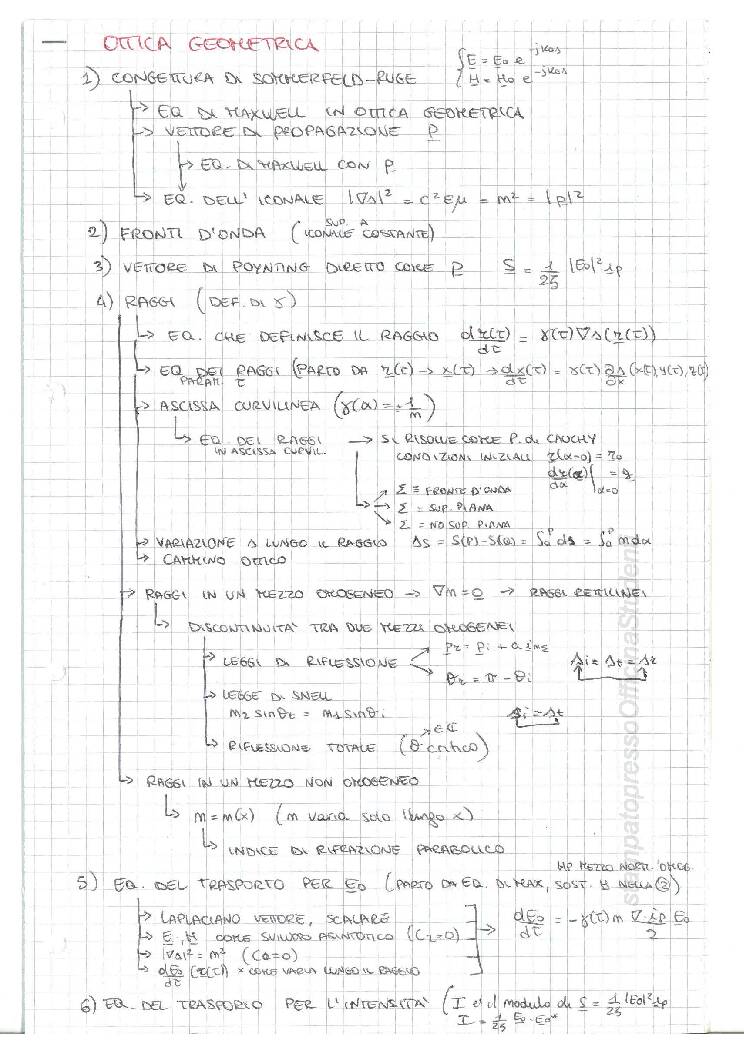 OTTICA GEOMETRICA
{ E = E0 e^-jk0s
{ H = H0 e^-jk0s
1) CONGETTURA DI SOMMERFELD-RUGE
↳ EQ DI MAXWELL IN OTTICA GEOMETRICA
↳ VETTORE DI PROPAGAZIONE P
↳ EQ. DI MAXWELL CON P
↳ EQ. DELL' ICONALE |∇s|² = c²εμ = m² = |p|²
2) FRONTI D'ONDA (SUP. A ICONALE COSTANTE)
3) VETTORE DI POYNTING DIRETTO COME P S = 1/2ζ |E0|² ip
4) RAGGI (DEF. DI γ)
↳ EQ. CHE DEFINISCE IL RAGGIO dr(τ)/dτ = γ(τ)∇s(r(τ))
↳ EQ PARAM. DEI RAGGI (PARTO DA r(τ) → x(τ) → dx(τ)/dτ = γ(τ) ∂s/∂x (x(τ), y(τ), z(τ)
↳ ASCISSA CURVILINEA (γ(α) = 1/m)
↳ EQ. DEI RAGGI IN ASCISSA CURVIL. → SI RISOLVE COME P. di CAUCHY
CONDIZIONI INIZIALI r(α=0) = r0
dr(α)/dα |α=0 = q
Σ ≡ FRONTE D'ONDA
Σ = SUP. PIANA
Σ = NO SUP. PIANA
↳ VARIAZIONE s LUNGO IL RAGGIO Δs = S(P)-S(Q) = ∫ds = ∫m dα
↳ CAMMINO OTTICO
↳ RAGGI IN UN MEZZO OMOGENEO → ∇m = 0 → RAGGI RETTILINEI
↳ DISCONTINUITA' TRA DUE MEZZI OMOGENEI
↳ LEGGI DI RIFLESSIONE
pr = pi + a
θr = π - θi
si = st = sr
↳ LEGGE DI SNELL
m2 sinθt = m1 sinθi
si = st
↳ RIFLESSIONE TOTALE (θ critico)
∈ ℂ
↳ RAGGI IN UN MEZZO NON OMOGENEO
↳ m = m(x) (m varia solo lungo x)
↳ INDICE DI RIFRAZIONE PARABOLICO
HP MEZZO NORM. OMOG.
5) EQ. DEL TRASPORTO PER E0 (PARTO DA EQ. DI MAX, SOST. H NELLA (2))
↳ LAPLACIANO VETTORE, SCALARE
↳ E, H COME SVILUPPO ASINTOTICO (C2=0)
↳ |∇s|² = m² (C0=0)
↳ dE0/dτ (r(τ)) * COME VARIA LUNGO IL RAGGIO
→ dE0/dτ = -γ(τ) m ∇·ip/2 E0
6) EQ. DEL TRASPORTO PER L'INTENSITA' (I è il modulo di S = 1/2ζ |E0|² ip
I = 1/2ζ E0·E0*
stampatopressoOfficinaStudenti